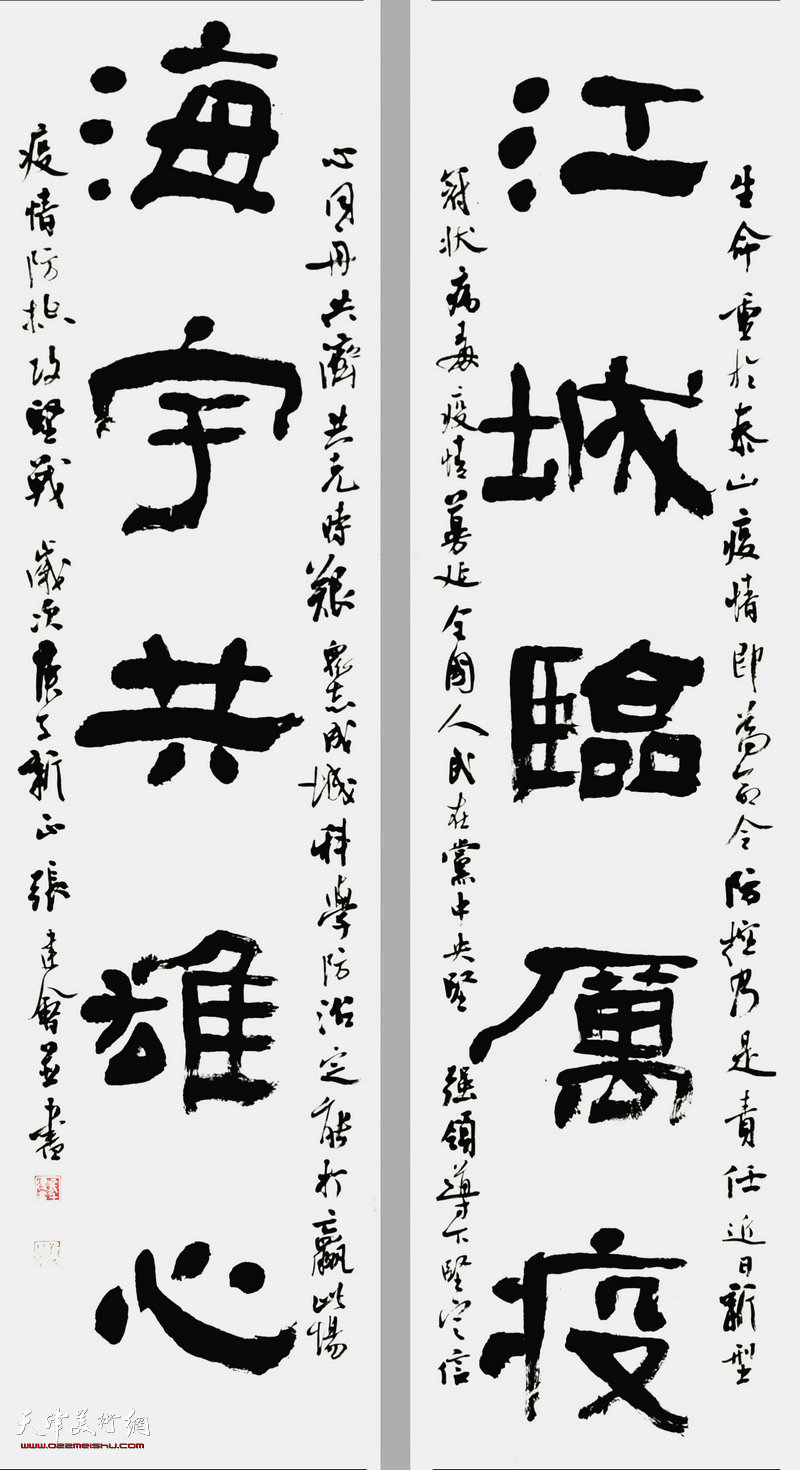 江城臨厲疫
生命重於泰山疫情即為命令防控乃是責任近日新型
冠状病毒疫情蔓延全國人民在黨中央堅强領導下堅定信
海宇共雄心
心同舟共濟共克時艱眾志成城科學防治定能打贏此場
疫情防控攻堅戰 歲次庚子新正張建會並書
天津美術網
www.022meishu.com